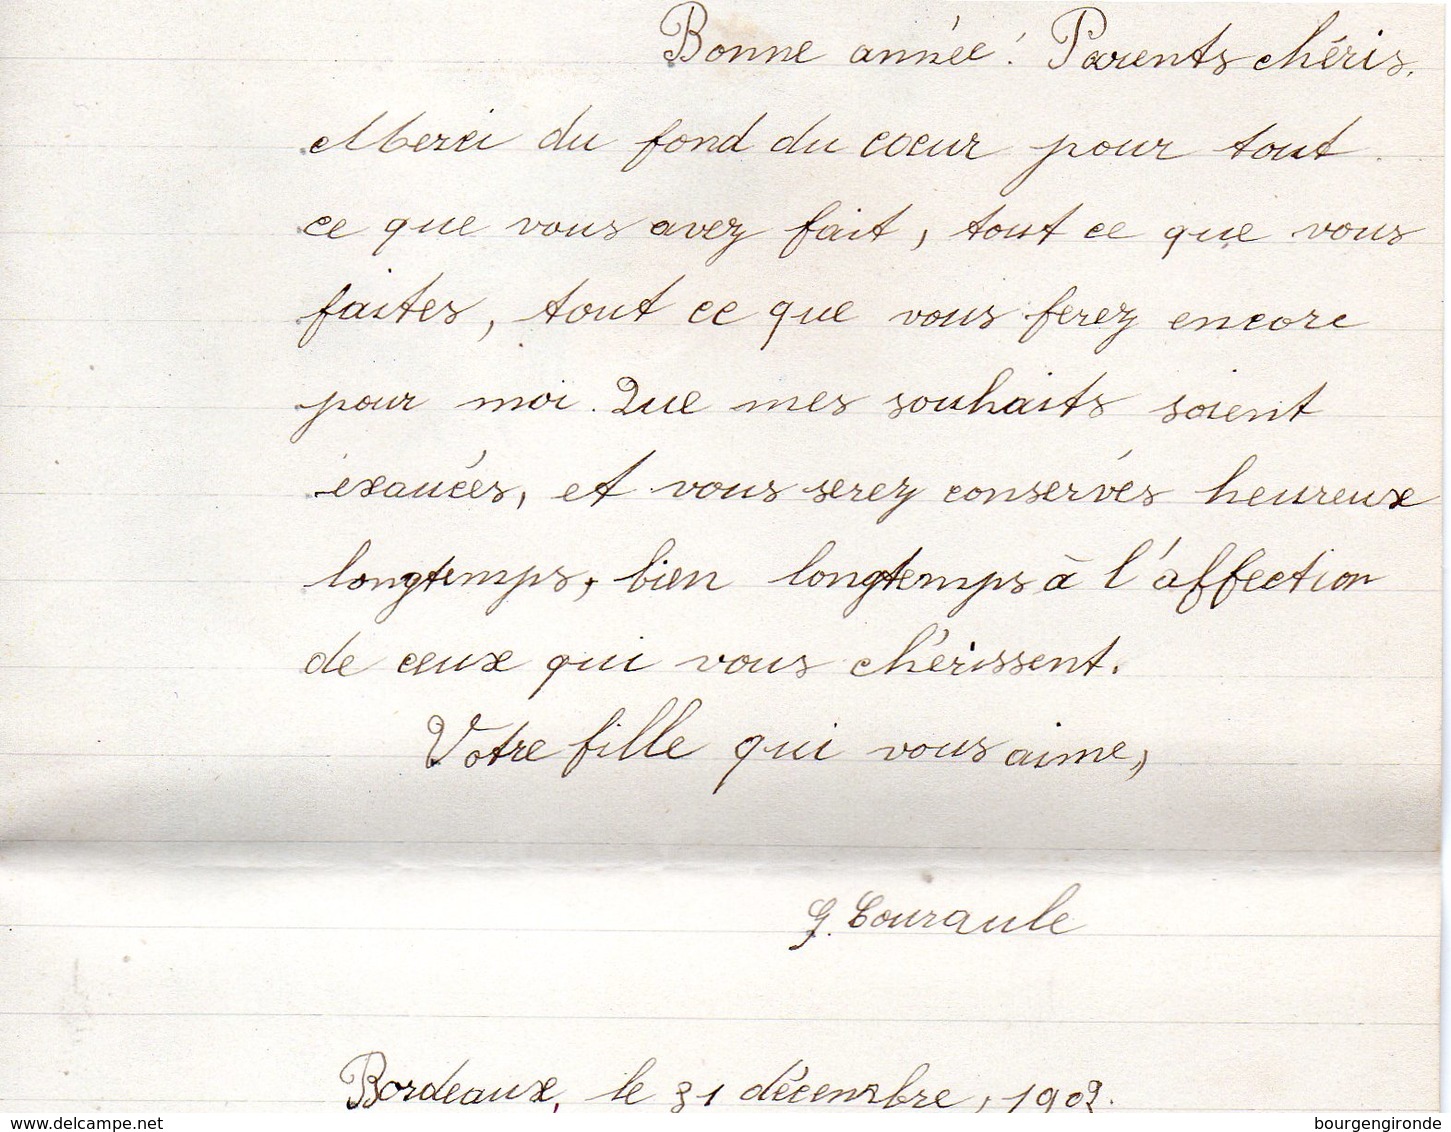 Bonne année! Parents chéris.
Merci du fond du coeur pour tout
ce que vous avez fait, tout ce que vous
faites, tout ce que vous ferez encore
pour moi. Que mes souhaits soient
exaucés, et vous serez conservés heureux
longtemps, bien longtemps à l'affection
de ceux qui vous chérissent.
Votre fille qui vous aime,
G. Couraule
Bordeaux, le 31 décembre, 1902.
www.delcampe.net
bourgengironde